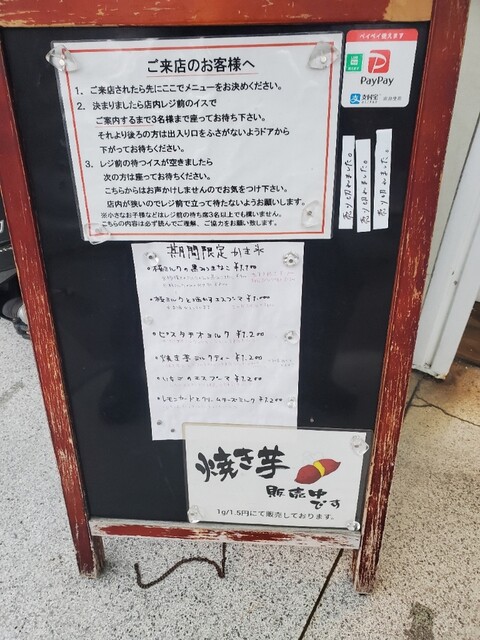 ご来店のお客様へ
1. ご来店されたら先にここでメニューをお決めください。
2. 決まりましたら店内レジ前のイスで
ご案内するまで3名様まで座ってお待ち下さい。
それより後ろの方は出入り口をふさがないようドアから
下がってお待ちください。
3. レジ前の待つイスが空きましたら
次の方は座ってお待ちください。
こちらからはお声かけしませんのでお気をつけ下さい。
店内が狭いのでレジ前で立って待たないようお願いします。
※小さなお子様などはレジ前の待ち席3名以上でも構いません。
こちらの内容は必ず読んでご理解、ご協力をお願い致します。
ペイペイ使えます
PayPay
支付宝
売り切れました。
売り切れました。
売り切れました。
期間限定 かき氷
ピスタチオミルク ¥1,200
焼き芋ミルクティー ¥1,200
いちごのエスプーマ ¥1,200
レモンカードとクリームチーズミルク ¥1,200
焼き芋
販売中
です
1g/1.5円にて販売しております。